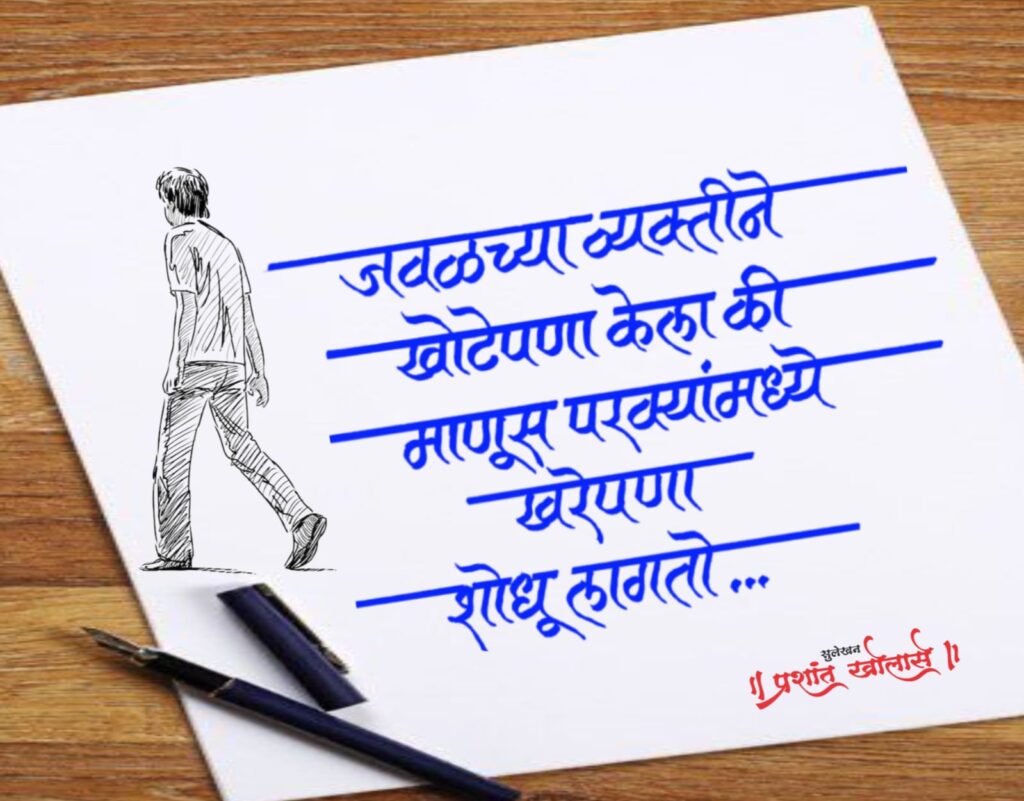 जवळच्या व्यक्तीने
खोटेपणा केला की
माणूस परक्यांमध्ये
खरेपणा
शोधू लागतो...
सुलेखन
॥ प्रशांत खोलासे ॥